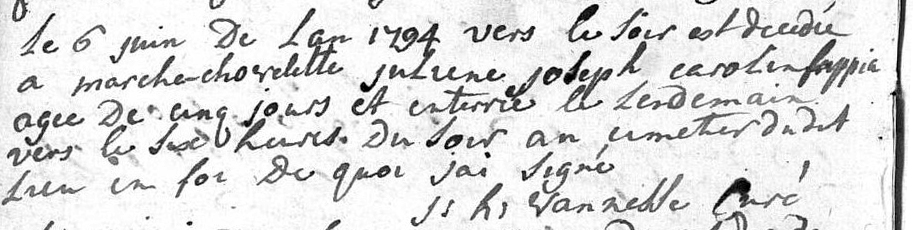 le 6 juin De Lan 1794 vers le soir est decedée
a marche-chovelette juliene joseph carolin frippia
agee De cinq jours et enterrée le Lendemain
vers le six heures Du soir au cimetier dudit
Lieu en foi De quoi jai signé
js hs Wannesse Curé